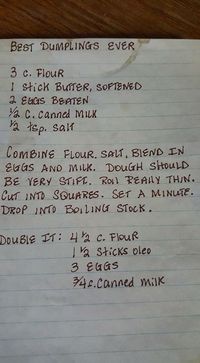 BEST DUMPLINGS EVER
3 C. FLOUR
1 STICK BUTTER, SOFTENED
2 EGGS BEATEN
1/2 C. CANNED MILK
1/2 tsp. SALT
COMBINE FLOUR, SALT, BLEND IN
EGGS AND MILK. DOUGH SHOULD
BE VERY STIFF. ROLL REALLY THIN.
CUT INTO SQUARES. SET A MINUTE.
DROP INTO BOILING STOCK.
DOUBLE IT: 4 1/2 C. FLOUR
1 1/2 STICKS OLEO
3 EGGS
3/4 C. CANNED MILK